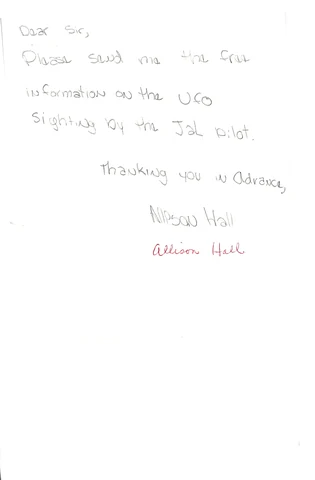 Dear Sir,
Please send me the free
information on the UFO
Sighting by the Jal pilot.
Thanking you in Advance,
Allison Hall
Allison Hall